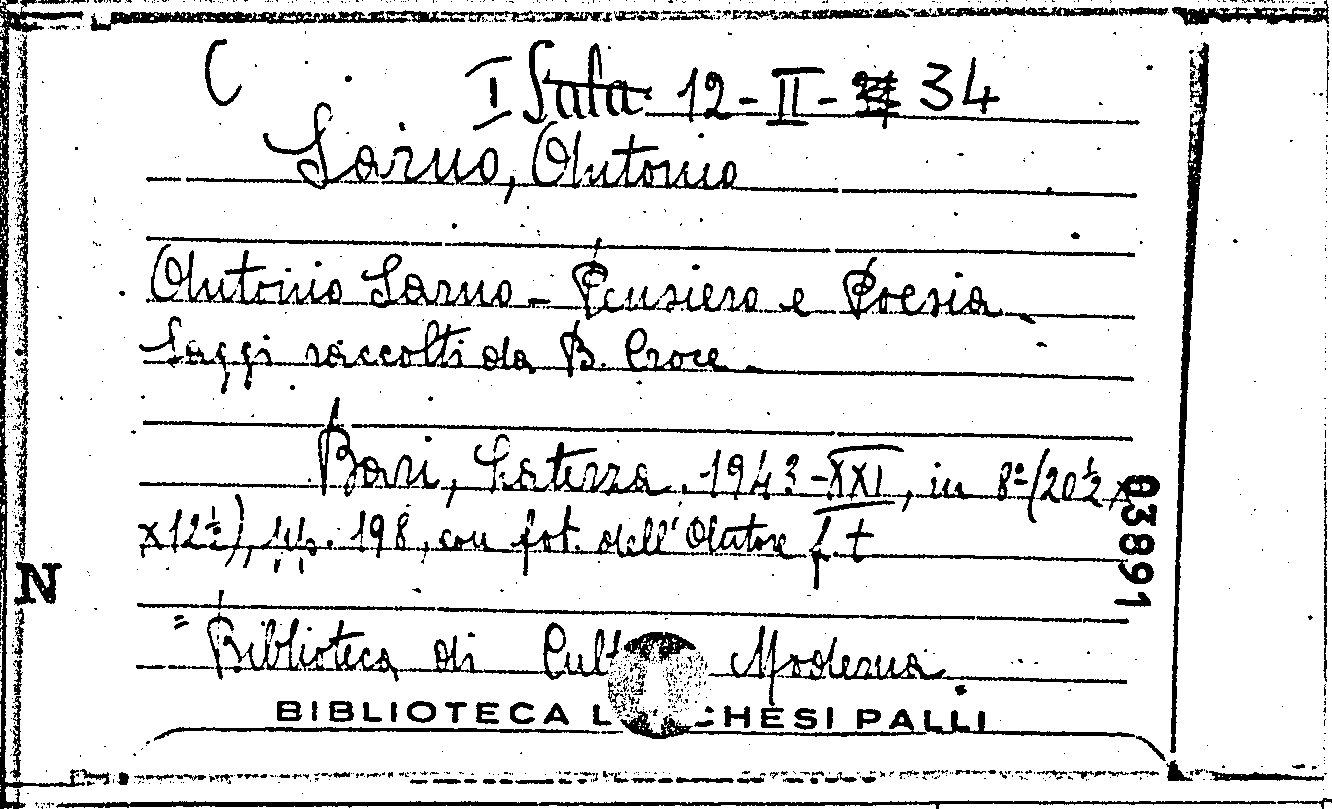 C
I Sala 12-II- 34
Sarno, Antonio
Antonio Sarno - Pensiero e Poesia -
Saggi raccolti da B. Croce -
Bari, Laterza, 1943-XXI, in 8º (20½ x
x12½), pp. 198, con fot. dell'Autore f. t
= Biblioteca di Cul Moderna.
BIBLIOTECA L CHESI PALLI
03891
N